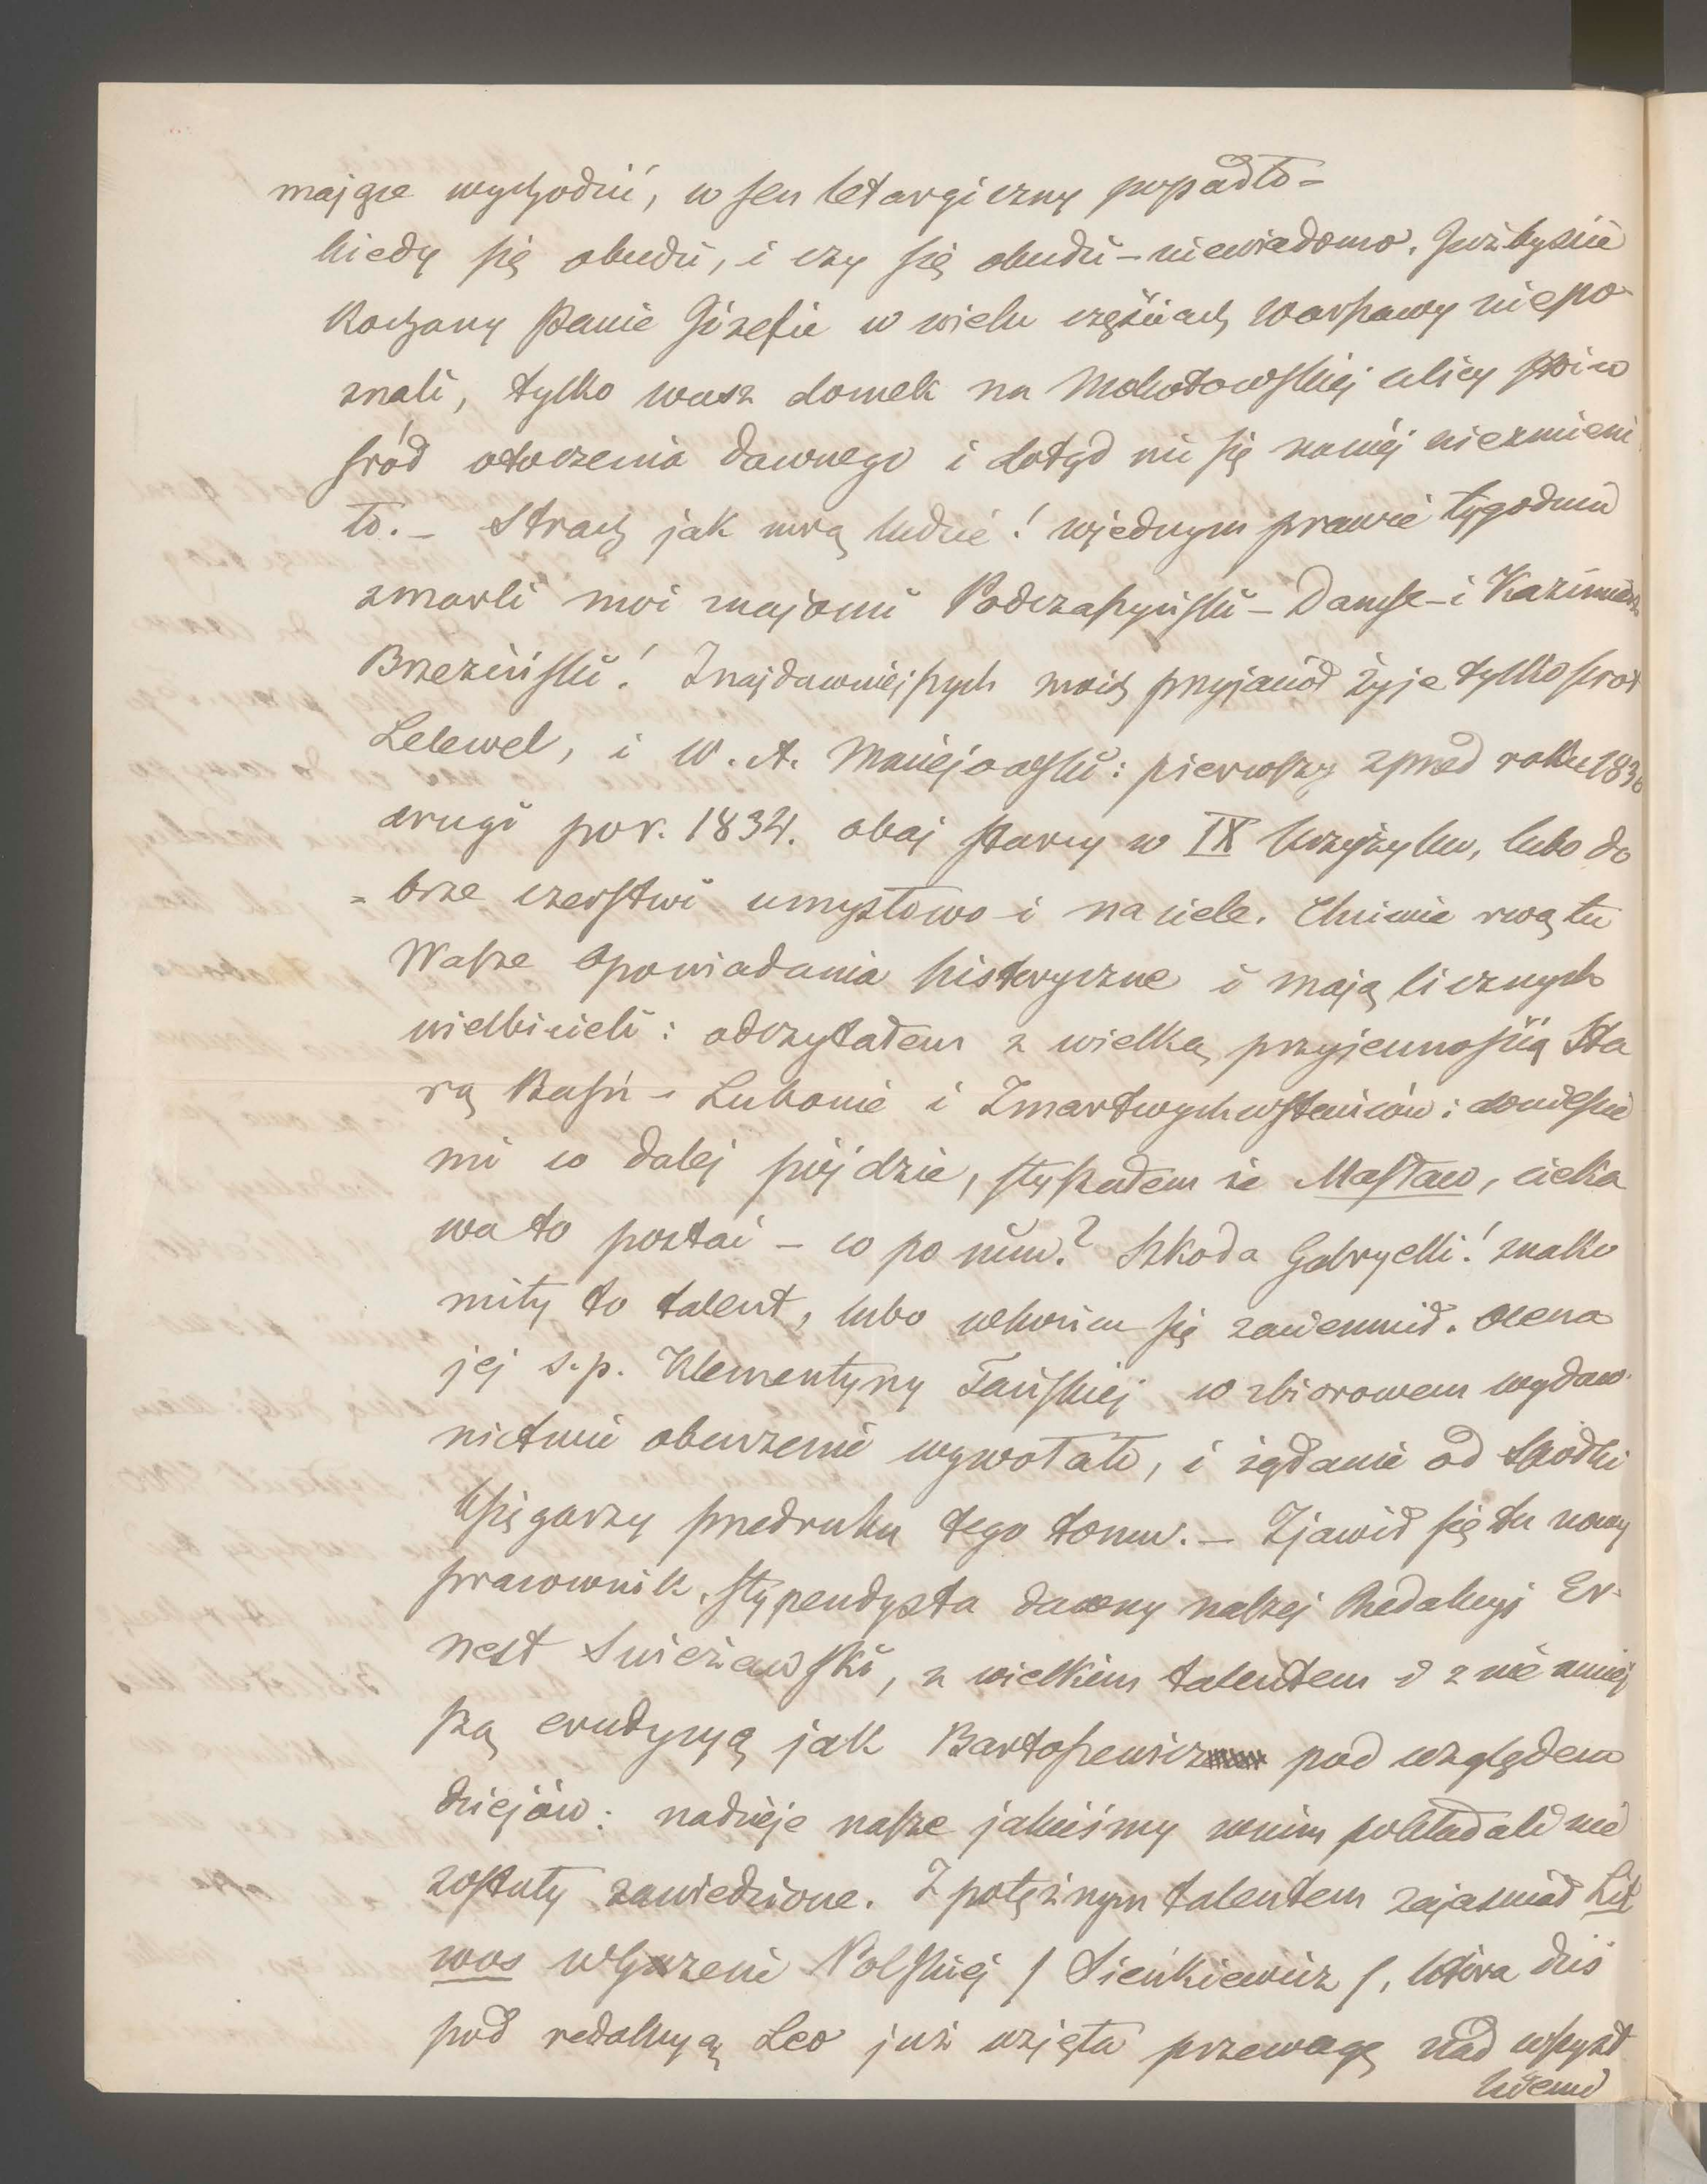 mające wychodzić, w sen letargiczny popadło =
kiedy się obudzi, i czy się obudzi – niewiadomo. Jużbyście
Kochany Panie Józefie w wielu częściach Warszawy niepo
znali, tylko wasz domek na Mokotowskiej ulicy stoi w
śród otoczenia dawnego i dotąd nic się wniéj niezmieni
ło. – Strach jak mrą ludzie! wjednym prawie tygodniu
zmarli moi znajomi Podczaszyński – Danse – i Kazimierz
Brzeziński! Znajdawniejszych moich przyjaciół żyje tylko
Lelewel, i W. A. Maciejowski: pierwszy zprzed roku 1830
drugi po r. 1834. obaj starcy w IX krzyżyku, lubo do
= brze czerstwi umysłowo i na ciele. Chciwie rwą tu
Wasze opowiadania historyczne i mają licznych
wielbicieli: odczytałem z wielką przyjemnością Sta
rą Baśń – Lubonie i Zmartwychwstańców: donieście
mi co dalej pójdzie, słyszałem że Masław, cieka
wa to postać – co po nim? Szkoda Gabryelli! znako
mity to talent, lubo wkońcu się zaciemnił. Ocena
jej s. p. Klementyny Tańskiej w zbiorowem wydaw
nictwie oburzenie wywołało, i żądanie od Spółki
księgarzy przedruku tego tomu. – Zjawił się tu nowy
pracownik, stypendysta dawny naszej Redakcyi Er=
nest Świeżawski, z wielkim talentem i z nie mniej
szą erudycyą jak Bartoszewicz pod względem
dziejów: nadzieje nasze jakieśmy wnim pokładali nie
zostały zawiedzione. Z potężnym talentem zajaśniał Lit
wos w Gazecie Polskiej / Sienkiewicz /, która dziś
pod redakcyą Leo już wzięła przewagę nad wszyst
kiemi